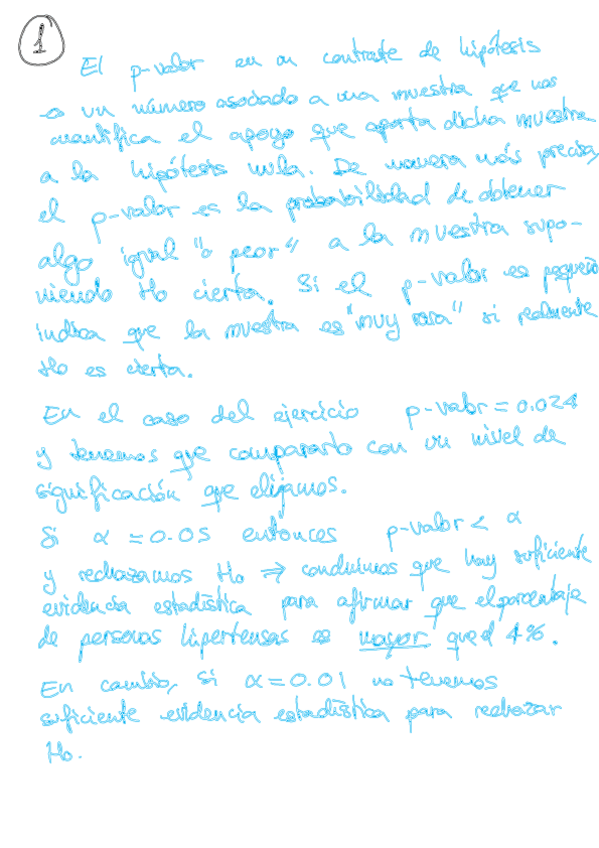 1
El p-valor en un contraste de hipótesis
es un número asociado a una muestra que nos
cuantifica el apoyo que aporta dicha muestra
a la hipótesis nula. De manera más precisa,
el p-valor es la probabilidad de obtener
algo igual "o peor" a la muestra supo-
niendo Ho cierta. Si el p-valor es pequeño
indica que la muestra es "muy rara" si realmente
Ho es cierta.
En el caso del ejercicio p-valor = 0.024
y tenemos que compararlo con un nivel de
significación que elijamos.
Si α = 0.05 entonces p-valor < α
y rechazamos Ho ⇒ concluimos que hay suficiente
evidencia estadística para afirmar que el porcentaje
de personas hipertensas es mayor que el 4%.
En cambio, si α = 0.01 no tenemos
suficiente evidencia estadística para rechazar
Ho.